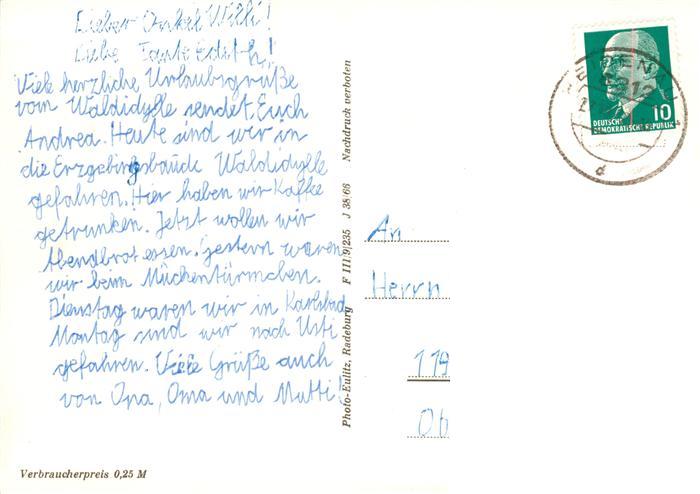 Lieber Onkel Willi!
Liebe Tante Edith!
Viele herzliche Urlaubsgrüße
vom Waldidylle sendet Euch
Andrea. Heute sind wir in
die Erzgebirgsbaude Waldidylle
gefahren. Hier haben wir Kaffee
getrunken. Jetzt wollen wir
Abendbrot essen. gestern waren
wir beim Mückentürmchen.
Dienstag waren wir in Karlsbad
Montag sind wir nach Usti
gefahren. Viele Grüße auch
von Opa, Oma und Mutti!
Verbraucherpreis 0,25 M
Photo-Eulitz, Radeburg F III/9/235 J 38/66 Nachdruck verboten
10
DEUTSCHE
DEMOKRATISCHE REPUBLIK
An
Herrn
119
Ob